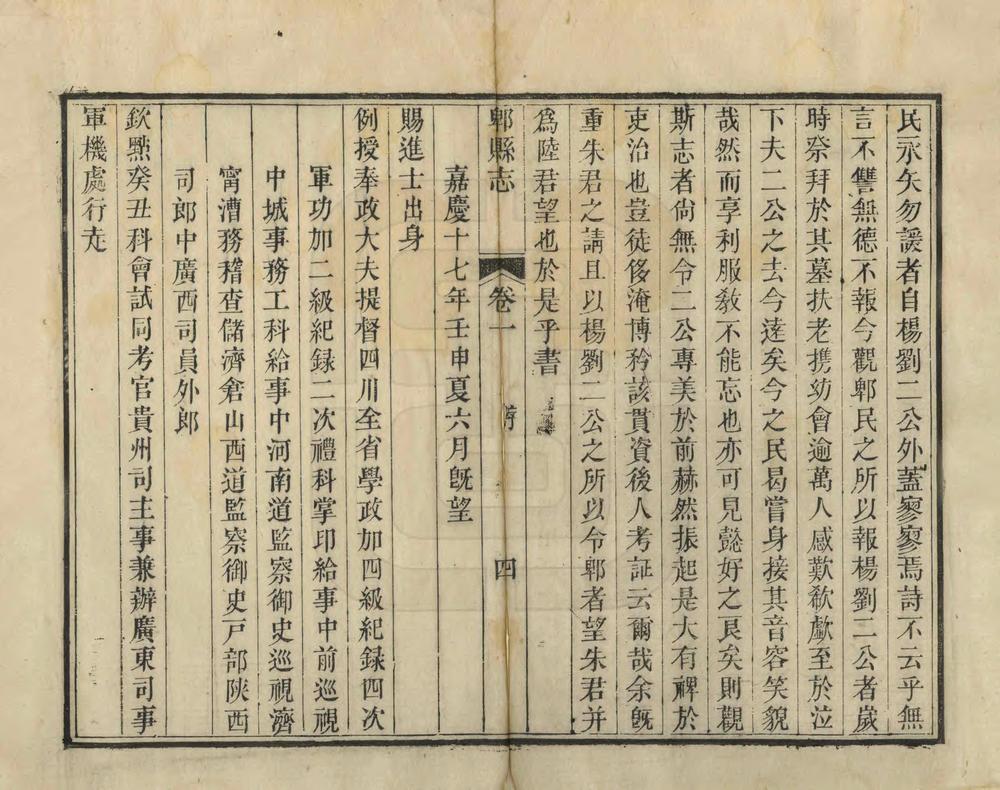 民永矢勿諼者自楊劉二公外蓋寥寥焉詩不云乎無
言不讐無德不報今觀郫民之所以報楊劉二公者歲
時祭拜於其墓扶老携幼會逾萬人感歎欷歔至於泣
下夫二公之去今遠矣今之民曷嘗身接其音容笑貌
哉然而享利服教不能忘也亦可見懿好之良矣則觀
斯志者尙無令二公專美於前赫然振起是大有裨於
吏治也豈徒侈淹博矜該貫資後人考証云爾哉余旣
重朱君之請且以楊劉二公之所以令郫者望朱君并
爲陸君望也於是乎書
郫縣志
卷一
四
嘉慶十七年壬申夏六月旣望
賜進士出身
例授奉政大夫提督四川全省學政加四級紀錄四次
軍功加二級紀錄二次禮科掌印給事中前巡視
中城事務工科給事中河南道監察御史巡視濟
甯漕務稽查儲濟倉山西道監察御史戸部陝西
司郎中廣西司員外郎
欽㸃癸丑科會試同考官貴州司主事兼辦廣東司事
軍機處行走